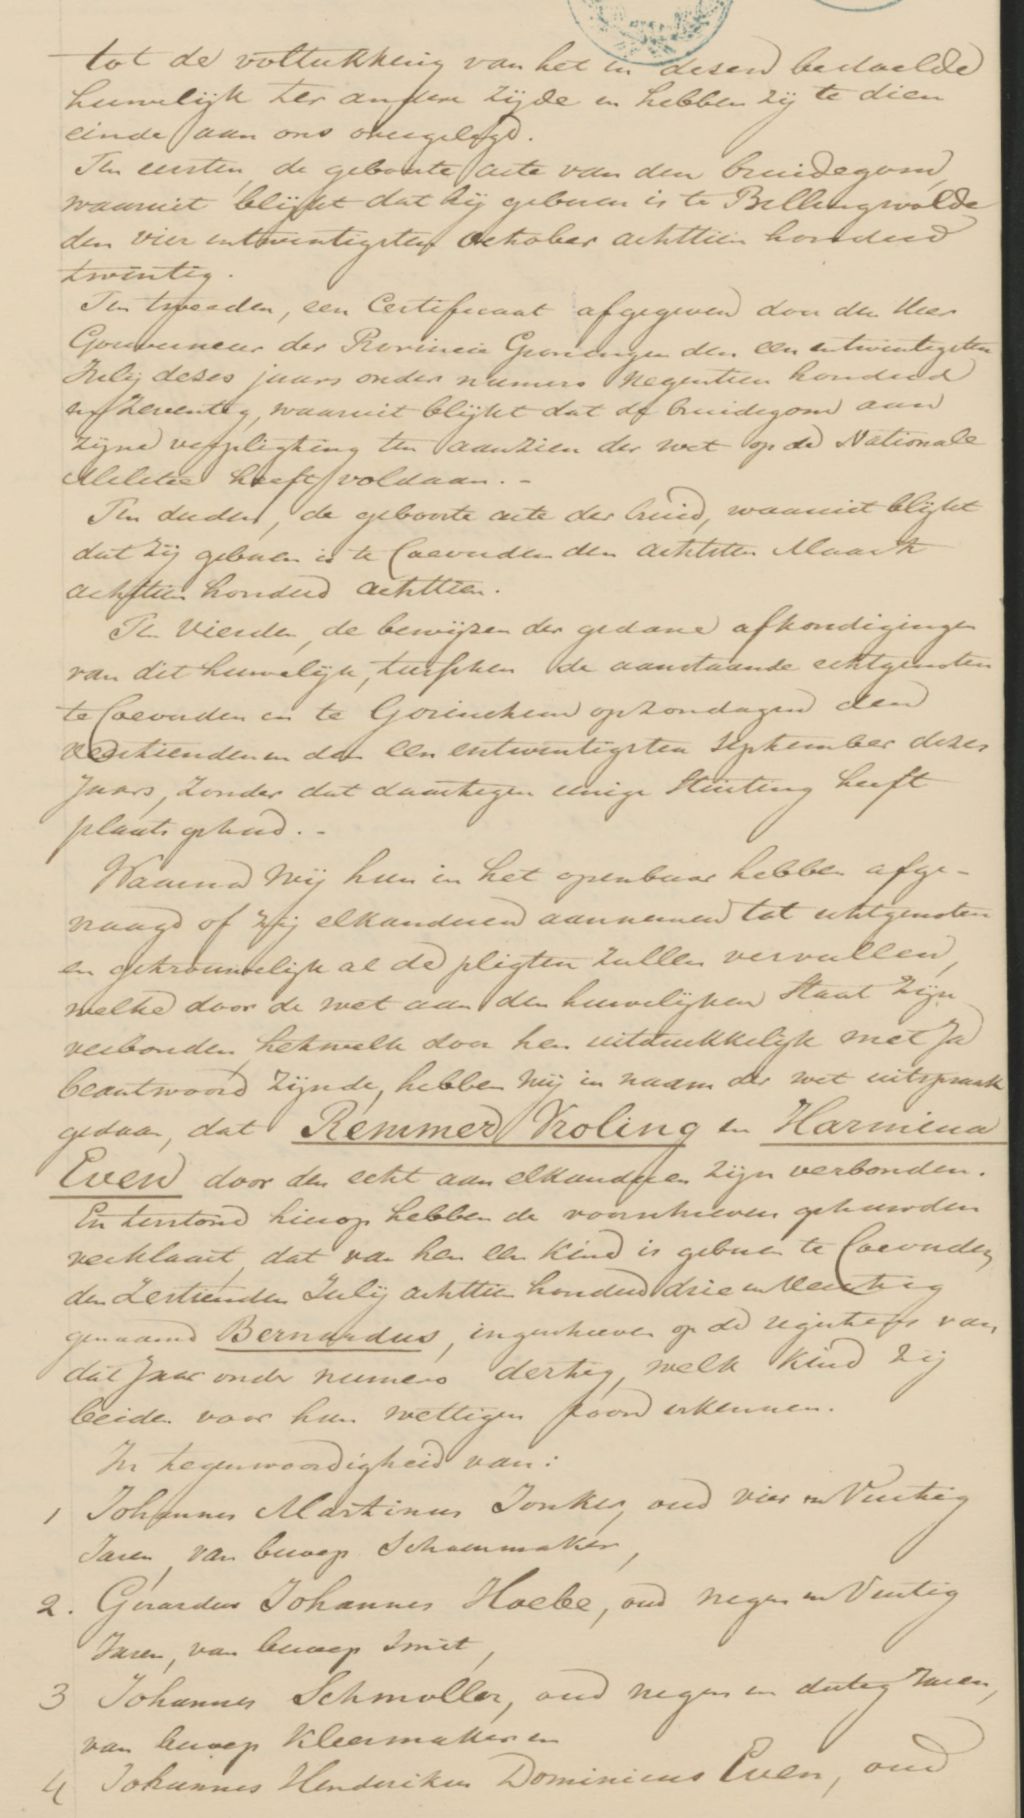 tot de voltrekking van het in desen bedoelde
huwelijk ter andere zijde en hebben zij te dien
einde aan ons overgelegd.
Ten eersten, de geboorte acte van den bruidegom,
waaruit blijkt dat hij geboren is te Bellingwolde
den vier entwintigsten October achttien honderd
twintig.
Ten tweeden, een Certificaat afgegeven door den Heer
Gouverneur der Provincie Groningen den een entwintigsten
Julij deses jaars onder numero Negentien honderd
en Zeventig, waaruit blijkt dat de bruidegom aan
zijne verpligting ten aanzien der wet op de Nationale
Militie heeft voldaan. -
Ten derden, de geboorte acte der bruid, waaruit blijkt
dat zij geboren is te Coevorden den achtsten Maart
achttien honderd achttien.
Ten Vierden, de bewijzen der gedane afkondigingen
van dit huwelijk, tusschen de aanstaande echtgenoten
te Coevorden en te Gorinchem op Zondagen den
veertienden en den een entwintigsten September dezes
Jaars, zonder dat daartegen eenige Stuiting heeft
plaats gehad. -
Waarna Wij hun in het openbaar hebben afge-
vraagd of zij elkanderen aannemen tot echtgenoten
en getrouwelijk al de pligten zullen vervullen,
welke door de wet aan den huwelijken Staat zijn
verbonden, hetwelk door hen uitdrukkelijk met Ja
beantwoord zijnde, hebben wij in naam der wet uitspraak
gedaan, dat Remmer Vroling en Harmina
Even door den echt aan elkanderen zijn verbonden.
En terstond hierop hebben de voorschreven gehuwden
verklaart, dat van hen een kind is geboren te Coevorden
den Zestienden Julij achttien honderd drie en Veertig
genaamd Bernardus, ingeschreven op de registers van
dat Jaar onder numero dertig, welk kind zij
beiden voor hun wettigen zoon erkennen.
In tegenwoordigheid van:
1 Johannes Martinus Jonker, oud vier en Veertig
Jaren, van beroep Schoenmaker,
2. Gerardus Johannes Hoebe, oud negen en Veertig
Jaren, van beroep Smit,
3 Johannes Schmoller, oud negen en dertig Jaren,
van beroep Kleermaker en
4 Johannes Henderikus Dominicus Even, oud